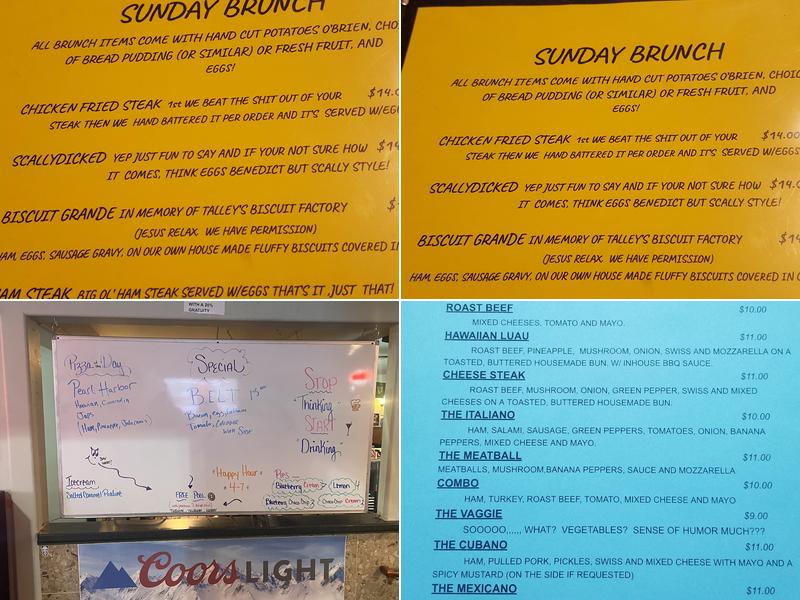 SUNDAY BRUNCH
ALL BRUNCH ITEMS COME WITH HAND CUT POTATOES O'BRIEN, CHO
OF BREAD PUDDING (OR SIMILAR) OR FRESH FRUIT, AND
EGGS!
CHICKEN FRIED STEAK 1st WE BEAT THE SHIT OUT OF YOUR $14.0
STEAK THEN WE HAND BATTERED IT PER ORDER AND IT'S SERVED W/EGG
SCALLYDICKED YEP JUST FUN TO SAY AND IF YOUR NOT SURE HOW $14
IT COMES, THINK EGGS BENEDICT BUT SCALLY STYLE!
BISCUIT GRANDE IN MEMORY OF TALLEY'S BISCUIT FACTORY $
(JESUS RELAX. WE HAVE PERMISSION)
HAM, EGGS, SAUSAGE GRAVY, ON OUR OWN HOUSE MADE FLUFFY BISCUITS COVERED IN
HAM STEAK BIG OL' HAM STEAK SERVED W/EGGS THAT'S IT, JUST THAT!
SUNDAY BRUNCH
ALL BRUNCH ITEMS COME WITH HAND CUT POTATOES O'BRIEN, CHOIC
OF BREAD PUDDING (OR SIMILAR) OR FRESH FRUIT, AND
EGGS!
CHICKEN FRIED STEAK 1st WE BEAT THE SHIT OUT OF YOUR $14.00
STEAK THEN WE HAND BATTERED IT PER ORDER AND IT'S SERVED W/EGGS
SCALLYDICKED YEP JUST FUN TO SAY AND IF YOUR NOT SURE HOW $14.0
IT COMES, THINK EGGS BENEDICT BUT SCALLY STYLE!
BISCUIT GRANDE IN MEMORY OF TALLEY'S BISCUIT FACTORY $14
(JESUS RELAX. WE HAVE PERMISSION)
HAM, EGGS, SAUSAGE GRAVY, ON OUR OWN HOUSE MADE FLUFFY BISCUITS COVERED IN
WITH A 20%
GRATUITY
Pizza of the Day
Pearl Harbor
Hawaiian, Canadian
Japs
(Ham, Pineapple, Jalapenos)
Icecream
Salted Caramel Praline
SPECIAL
BELT
Bacon, egg, lettuce
Tomato,
with Side
Happy Hour
4-7
FREE Pool
STOP
Thinking
START
"Drinking"
Pies
Blueberry Cream
Lemon
Blueberry
Choco Chip Cream
Coors LIGHT
ROAST BEEF $10.00
MIXED CHEESES, TOMATO AND MAYO.
HAWAIIAN LUAU $11.00
ROAST BEEF, PINEAPPLE, MUSHROOM, ONION, SWISS AND MOZZARELLA ON A
TOASTED, BUTTERED HOUSEMADE BUN. W/ INHOUSE BBQ SAUCE.
CHEESE STEAK $11.00
ROAST BEEF, MUSHROOM, ONION, GREEN PEPPER, SWISS AND MIXED
CHEESES ON A TOASTED, BUTTERED HOUSEMADE BUN.
THE ITALIANO $10.00
HAM, SALAMI, SAUSAGE, GREEN PEPPERS, TOMATOES, ONION, BANANA
PEPPERS, MIXED CHEESE AND MAYO.
THE MEATBALL $11.00
MEATBALLS, MUSHROOM,BANANA PEPPERS, SAUCE AND MOZZARELLA
COMBO $10.00
HAM, TURKEY, ROAST BEEF, TOMATO, MIXED CHEESE AND MAYO
THE VAGGIE $9.00
SOOOOO,,,,,, WHAT? VEGETABLES? SENSE OF HUMOR MUCH???
THE CUBANO $11.00
HAM, PULLED PORK, PICKLES, SWISS AND MIXED CHEESE WITH MAYO AND A
SPICY MUSTARD (ON THE SIDE IF REQUESTED)
THE MEXICANO $11.00